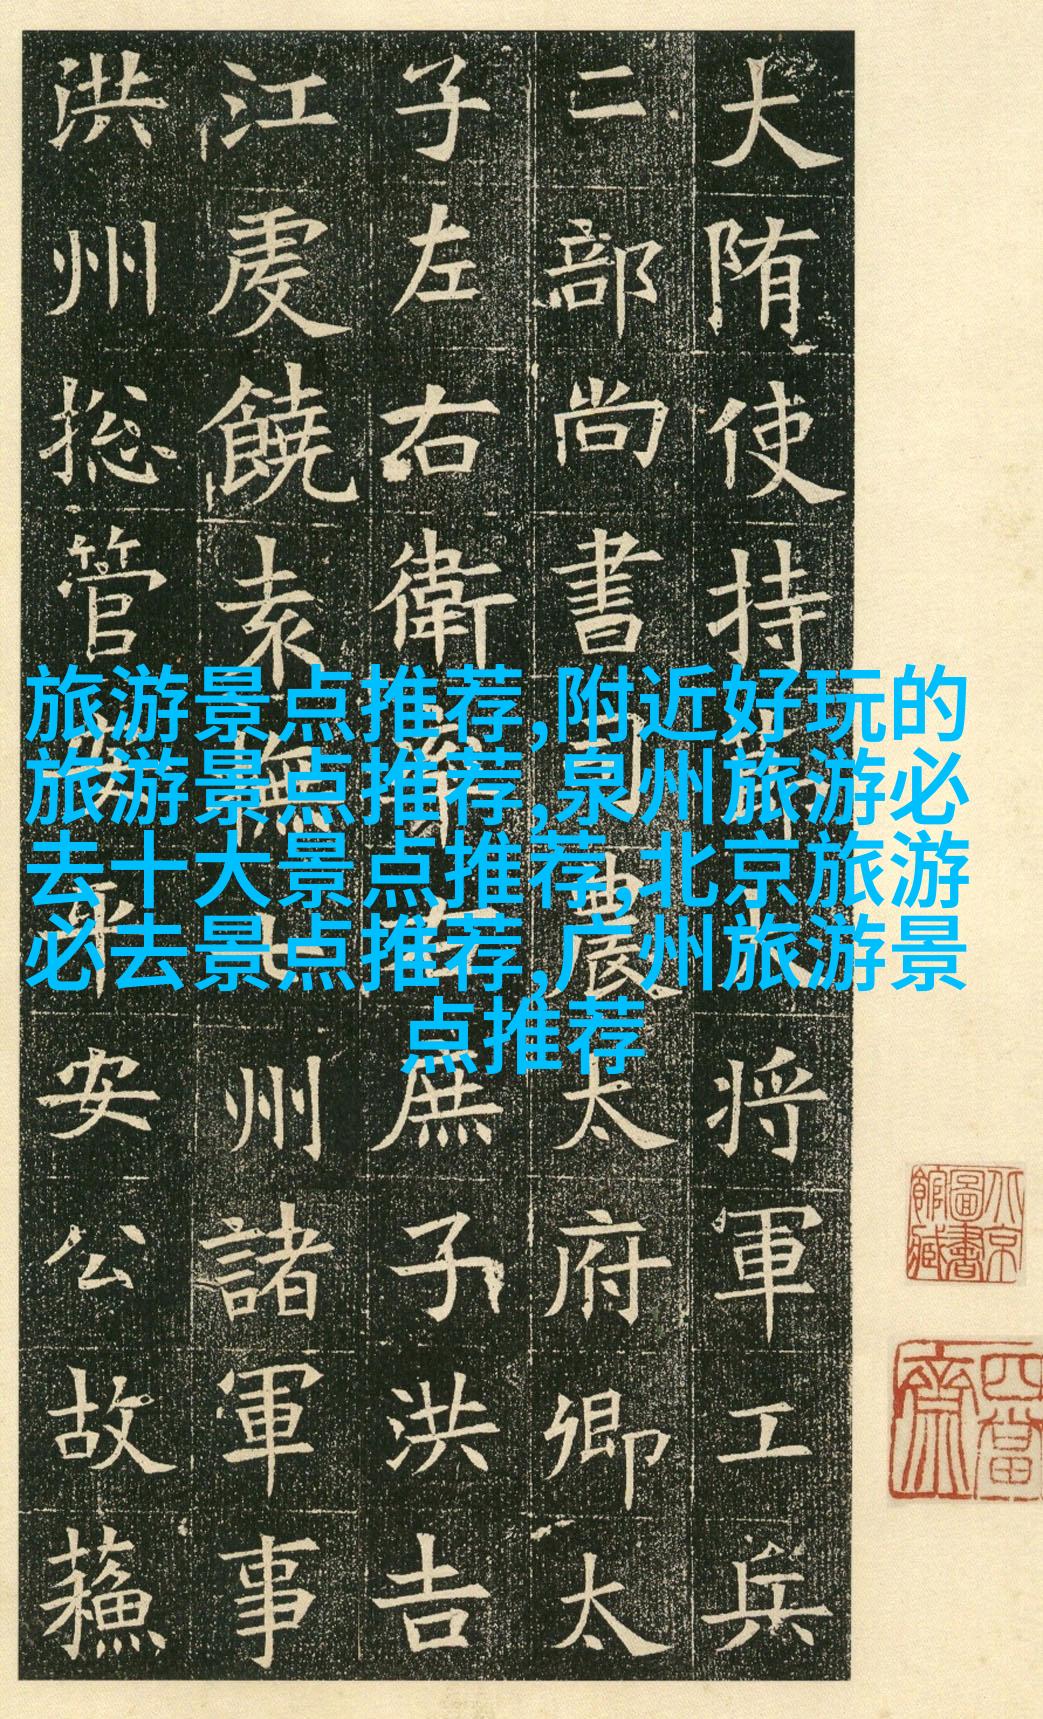 大隋使持将軍工兵
二部尚書司農太府卿太
子左右衛庶子洪吉
江虔饒袁州諸軍事
洪州捴管平安公故蘓
旅游景点推荐,附近好玩的
旅游景点推荐,泉州旅游必
去十大景点推荐,北京旅游
必去景点推荐,广州旅游景
点推荐
北京
圖書
館藏
四當
齋